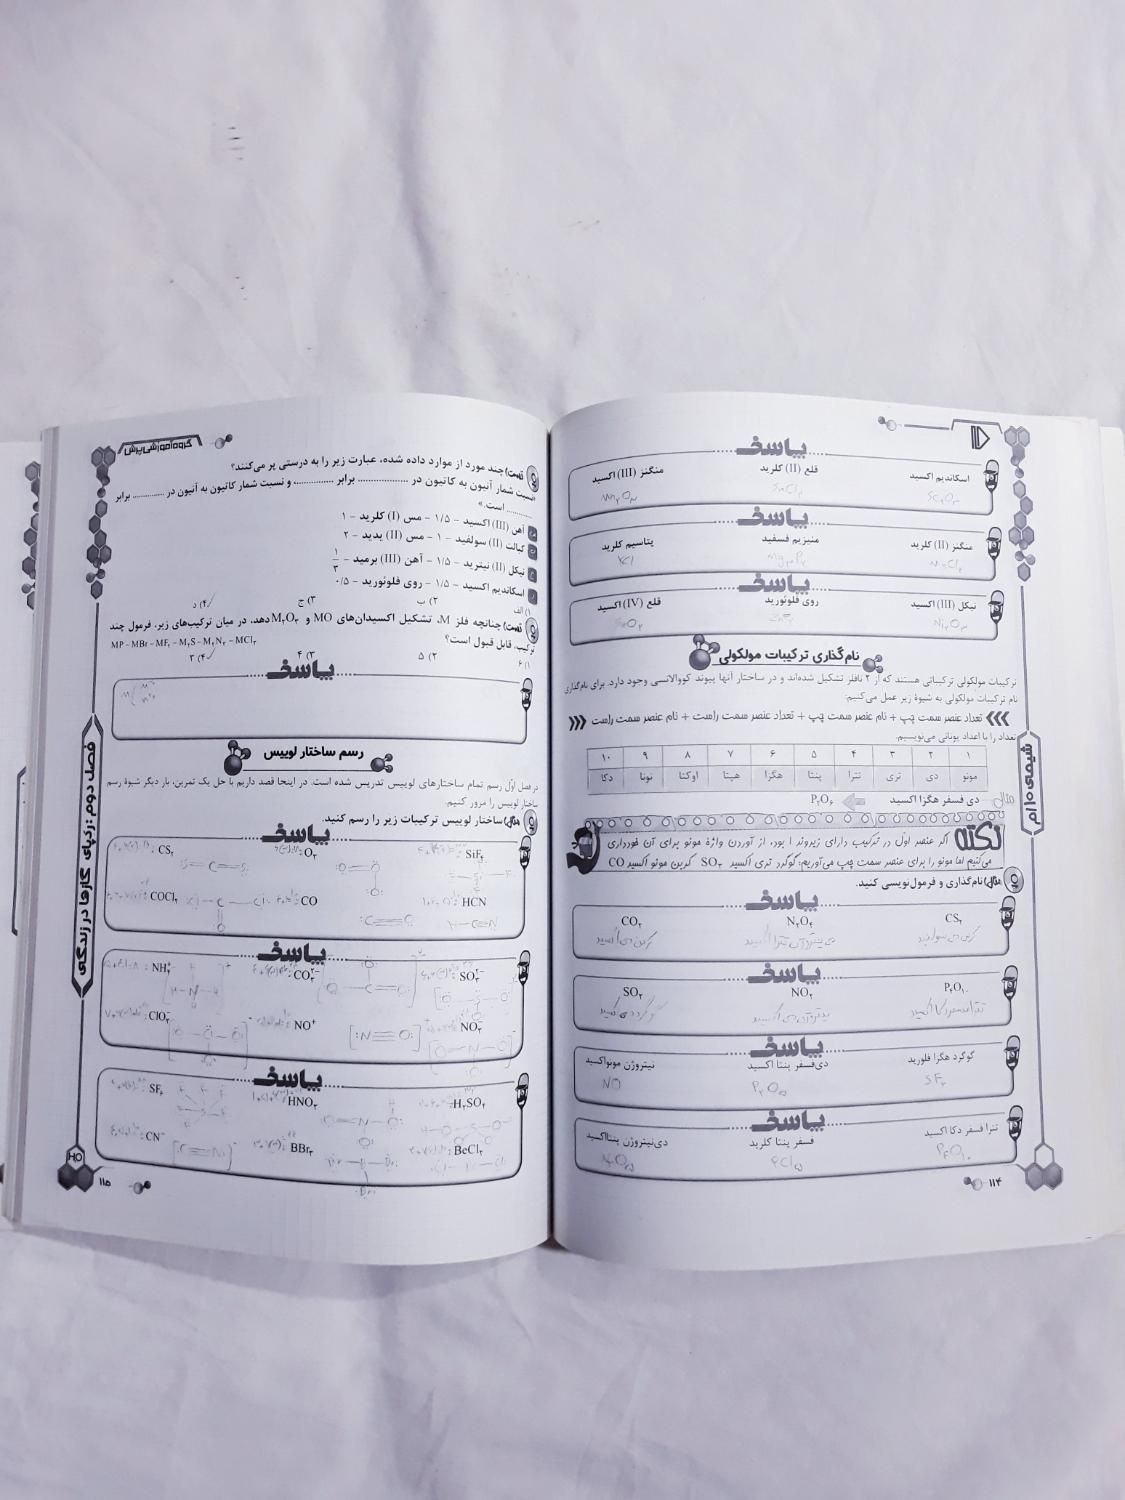 پاسخ
اسکاندیم اکسید قلع (II) کلرید منگنز (III) اکسید
Sc۲O۳ SnCl۲ Mn۲O۳
پاسخ
منگنز (II) کلرید منیزیم فسفید پتاسیم کلرید
MnCl۲ Mg۳P۲ KCl
پاسخ
نیکل (III) اکسید روی فلوئورید قلع (IV) اکسید
Ni۲O۳ ZnF۲ SnO۲
نام‌گذاری ترکیبات مولکولی
ترکیبات مولکولی ترکیباتی هستند که از ۲ نافلز تشکیل شده‌اند و در ساختار آنها پیوند کووالانسی وجود دارد. برای نام‌گذاری
نام ترکیبات مولکولی به شیوهٔ زیر عمل می‌کنیم:
تعداد عنصر سمت چپ + نام عنصر سمت چپ + تعداد عنصر سمت راست + نام عنصر سمت راست
تعداد را با اعداد یونانی می‌نویسیم.
۱ ۲ ۳ ۴ ۵ ۶ ۷ ۸ ۹ ۱۰
مونو دی تری تترا پنتا هگزا هپتا اوکتا نونا دکا
مثال دی فسفر هگزا اکسید P۲O۶
نکته اگر عنصر اول در ترکیب دارای زیروند ۱ بود، از آوردن واژهٔ مونو برای آن خودداری
می‌کنیم اما مونو را برای عنصر سمت چپ می‌آوریم: گوگرد تری اکسید SO۳ کربن مونو اکسید CO
مثال) نام‌گذاری و فرمول‌نویسی کنید.
پاسخ
CS۲ N۲O۴ CO۲
کربن دی سولفید دی نیتروژن تترا اکسید کربن دی اکسید
پاسخ
P۴O۱۰ NO۲ SO۲
تترا فسفر دکا اکسید نیتروژن دی اکسید گوگرد دی اکسید
پاسخ
گوگرد هگزا فلورید دی‌فسفر پنتا اکسید نیتروژن مونواکسید
SF۶ P۲O۵ NO
پاسخ
تترا فسفر دکا اکسید فسفر پنتا کلرید دی‌نیتروژن پنتااکسید
P۴O۱۰ PCl۵ N۲O۵
۱۱۴
شیمی ۱۰ام
گروه آموزشی پرش
تست) چند مورد از موارد داده شده، عبارت زیر را به درستی پر می‌کنند؟
«نسبت شمار آنیون به کاتیون در ............ برابر ............ و نسبت شمار کاتیون به آنیون در ............ برابر
............ است.»
آهن (III) اکسید – ۱/۵ – مس (I) کلرید – ۱
کبالت (II) سولفید – ۱ – مس (II) یدید – ۲
نیکل (II) نیترید – ۱/۵ – آهن (III) برمید – ۱/۳
اسکاندیم اکسید – ۱/۵ – روی فلوئورید – ۰/۵
۱) الف ۲) ب ۳) ج ۴) د
تست) چنانچه فلز M، تشکیل اکسیدان‌های MO و M۲O۳ دهد، در میان ترکیب‌های زیر، فرمول چند
ترکیب، قابل قبول است؟ MP – MBr – MF۲ – M۲S – M۳N۲ – MCl۳
۱) ۶ ۲) ۵ ۳) ۴ ۴) ۳
پاسخ
رسم ساختار لوییس
در فصل اوّل رسم تمام ساختارهای لوییس تدریس شده است. در اینجا قصد داریم با حل یک تمرین، بار دیگر شیوهٔ رسم
ساختار لوییس را مرور کنیم.
مثال) ساختار لوییس ترکیبات زیر را رسم کنید.
پاسخ
SiF۴ O۳ CS۲
HCN CO COCl۲
پاسخ
SO۳ CO۳ NH۴+
NO۳- NO+ ClO۳-
پاسخ
H۲SO۴ HNO۳ SF۶
BeCl۲ BBr۳ CN-
۱۱۵
فصل دوم : ردپای گازها در زندگی